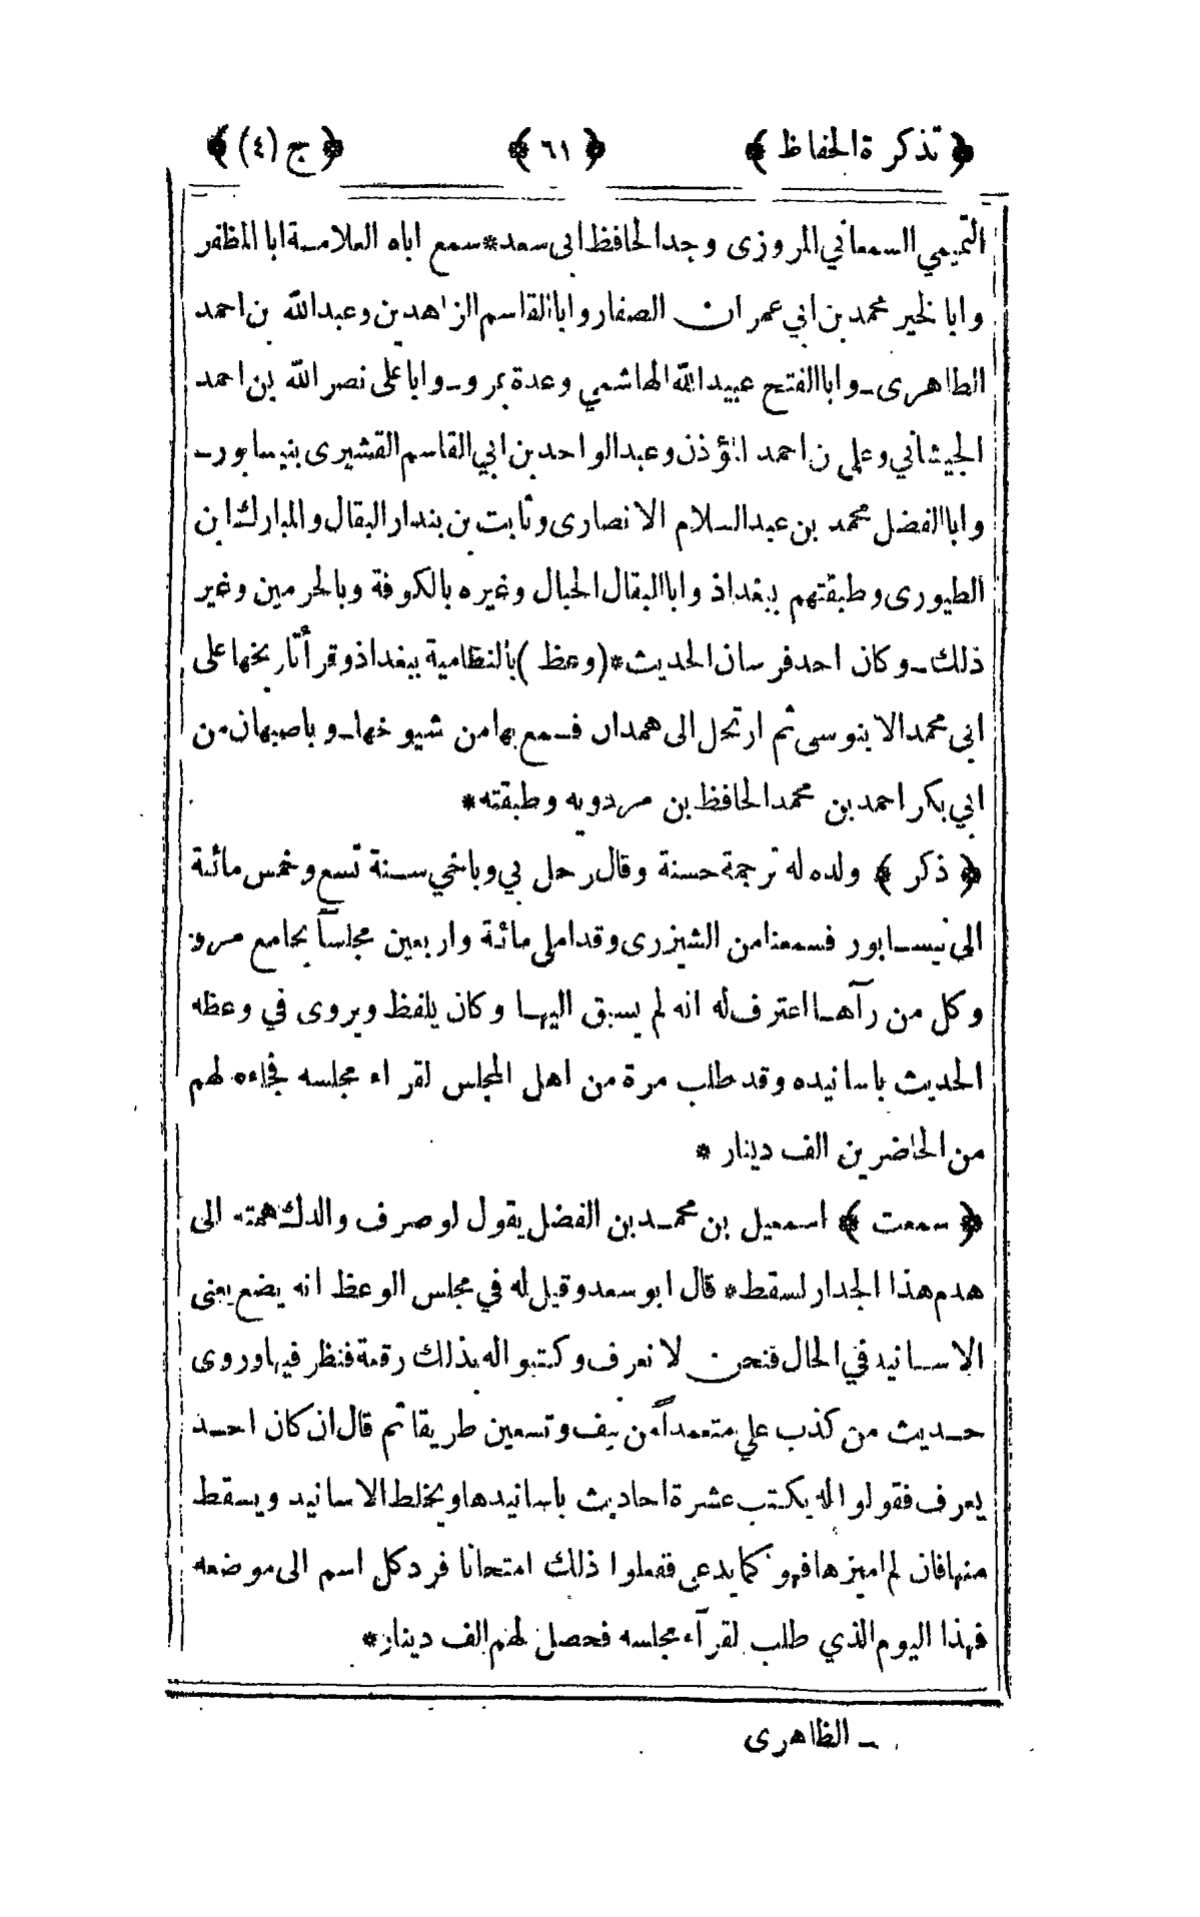 ﴿ تذكرة الحفاظ ﴾ ﴿ ٦١ ﴾ ﴿ ج (٤) ﴾
التميمي السمعاني المروزى وجد الحافظ ابى سعد * سمع اباه العلامة ابا المظفر
وابا لخير محمد بن ابي عمران الصفار وابا القاسم الزاهد بن وعبدالله بن احمد
الطاهرى ـ وابا الفتح عبيدالله الهاشمي وعدة بمرو ـ وابا على نصر الله بن احمد
الجيشاني وعلى بن احمد المؤذن وعبدالواحد بن ابي القاسم القشيرى بنيسابور ـ
وابا الفضل محمد بن عبدالسلام الانصارى وثابت بن بندار البقال والمبارك ابن
الطيورى وطبقتهم ببغداذ وابا البقال الحبال وغيره بالكوفة وبالحرمين وغير
ذلك ـ وكان احد فرسان الحديث * (وعظ ) بالنظامية ببغداذ وقرأ تاريخها على
ابى محمد الابنوسى ثم ارتحل الى همدان فسمع بها من شيوخها ـ وباصبهان من
ابي بكر احمد بن محمد الحافظ بن مردويه وطبقته *
﴿ ذكر ﴾ ولده له ترجمة حسنة وقال رحل بي وباخي سنة تسع وخمس مائة
الى نيسابور فسمعنا من الشيزرى وقد املى مائة واربعين مجلساً بجامع مرو
وكل من رآها اعترف له انه لم يسبق اليها وكان يلفظ ويروى في وعظه
الحديث باسانيده وقد طلب مرة من اهل المجلس لقراء مجلسه فجاءه لهم
من الحاضرين الف دينار *
﴿ سمعت ﴾ اسمعيل بن محمد بن الفضل يقول لو صرف والدك همته الى
هدم هذا الجدار لسقط * قال ابو سعد وقيل له في مجلس الوعظ انه يضع يعنى
الاسانيد في الحال فنحن لا نعرف وكتبوا له بذلك رقعة فنظر فيها وروى
حديث من كذب علي متعمداً من نيف وتسعين طريقا ثم قال ان كان احد
يعرف فقولوا له يكتب عشرة احاديث باسانيدها ويخلط الاسانيد ويسقط
منها فان لم اميزها فهو كما يدعى ففعلوا ذلك امتحانا فرد كل اسم الى موضعه
فهذا اليوم الذي طلب لقرآء مجلسه فحصل لهم الف دينار *
ـ الظاهرى